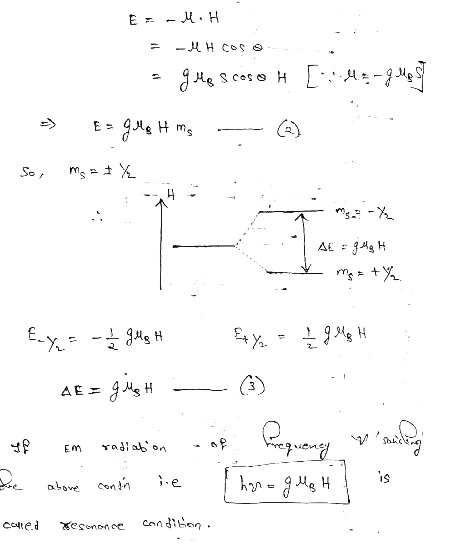 E = - μ · H
= - μ H cos θ
= g μ_B S cos θ H [∵ μ = - g μ_B S]
⇒ E = g μ_B H m_s —— (2)
So, m_s = ± 1/2
H
∴
m_s = - 1/2
ΔE = g μ_B H
m_s = + 1/2
E_-1/2 = - 1/2 g μ_B H E_+1/2 = 1/2 g μ_B H
ΔE = g μ_B H —— (3)
If EM radiation of frequency 'ν'
above condn i.e hν = g μ_B H is
called resonance condition.